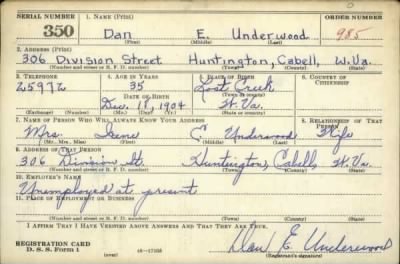 SERIAL NUMBER 1. Name (Print) ORDER NUMBER
350 Dan E. Underwood 985
(First) (Middle) (Last)
2. Address (Print)
306 Division Street Huntington, Cabell, W. Va.
(Number and street or R. F. D. number) (Town) (County) (State)
3. Telephone 4. Age in Years 5. Place of Birth 6. Country of Citizenship
25972 35 Lost Creek
Date of Birth (Town or county)
Dec. 18, 1904 W. Va.
(Exchange) (Number) (Mo.) (Day) (Yr.) (State or country)
7. Name of Person Who Will Always Know Your Address 8. Relationship of That Person
Mrs. Irene C. Underwood Wife
(Mr., Mrs., Miss) (First) (Middle) (Last)
9. Address of That Person
306 Division St. Huntington, Cabell, W. Va.
(Number and street or R. F. D. number) (Town) (County) (State)
10. Employer's Name
Unemployed at present
11. Place of Employment or Business
(Number and street or R. F. D. number) (Town) (County) (State)
I Affirm That I Have Verified Above Answers and That They Are True.
REGISTRATION CARD
D. S. S. Form 1 (over) Dan E. Underwood
(Registrant's signature)